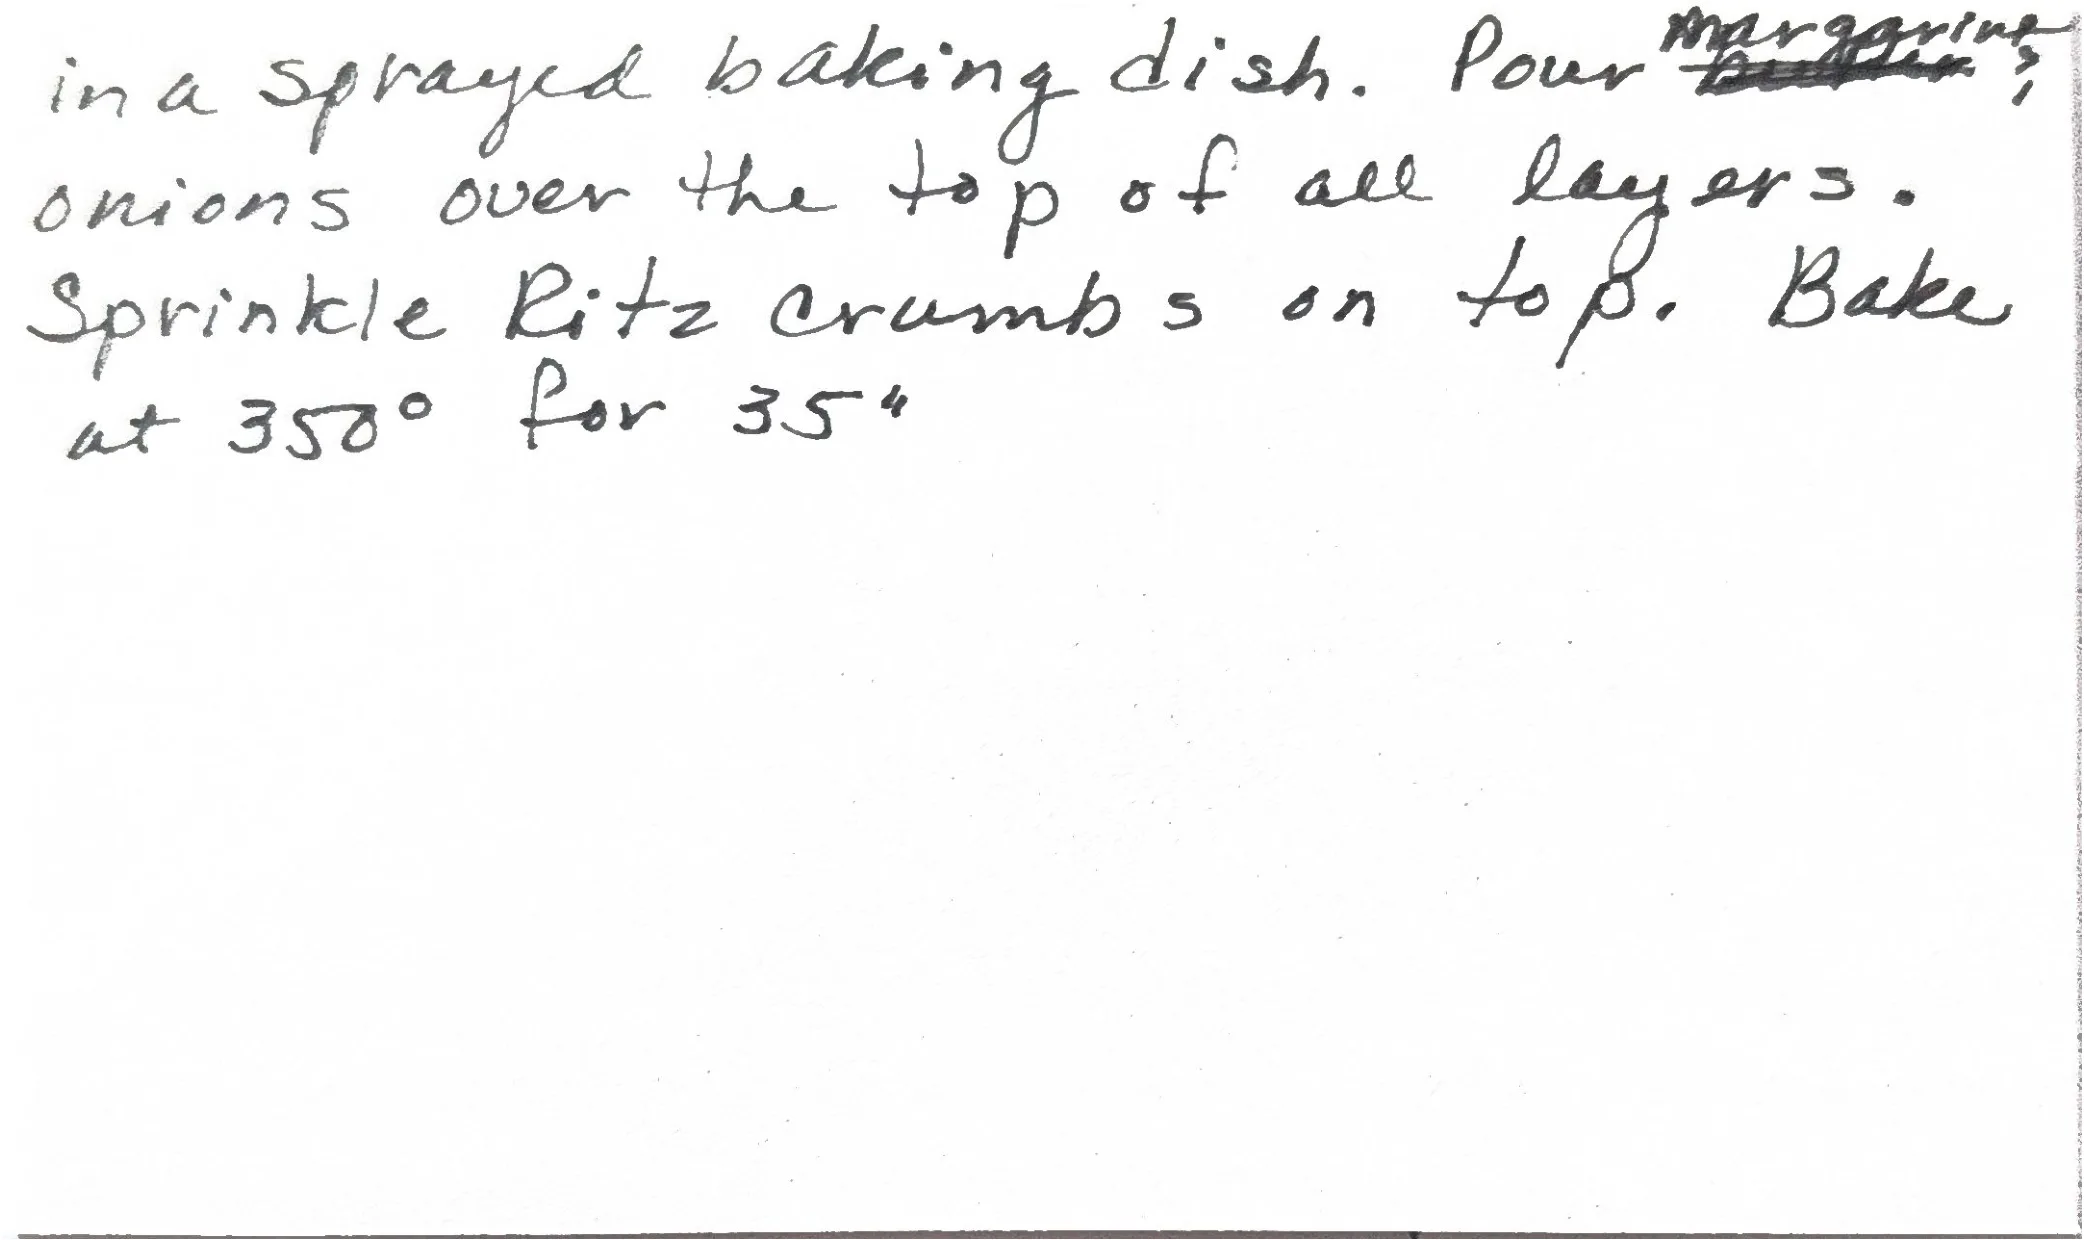 in a sprayed baking dish. Pour margarine &
onions over the top of all layers.
Sprinkle Ritz crumbs on top. Bake
at 350° for 35"